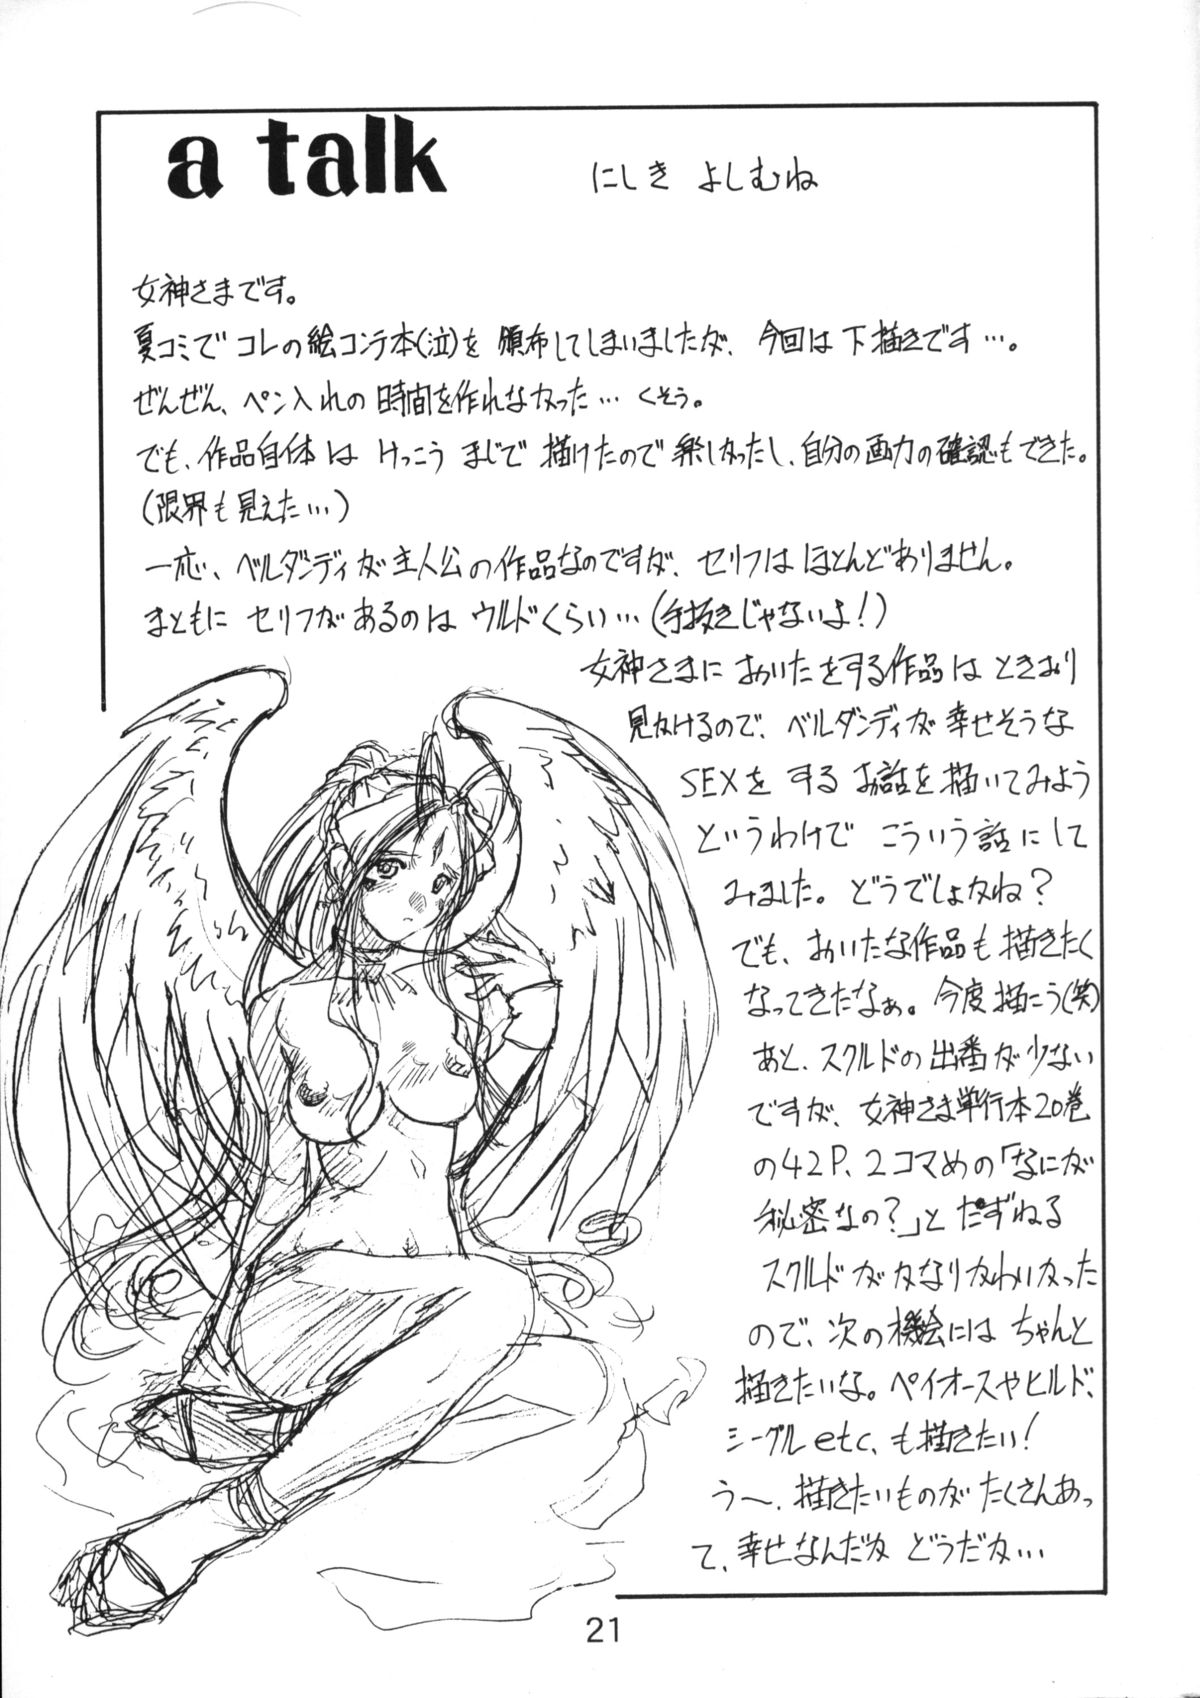 a talk
にしき よしむね
女神さまです。
夏コミで コレの絵コンテ本(泣)を 頒布してしまいましたが、今回は下描きです…。
ぜんぜん、ペン入れの時間を作れなかった…くそう。
でも、作品自体は けっこう まじで 描けたので 楽しかったし、自分の画力の確認もできた。
(限界も見えた…)
一応、ベルダンディが主人公の作品なのですが、セリフは ほとんどありません。
まともに セリフがあるのは ウルドくらい…(手抜きじゃないよ!)
女神さまに おいたをする作品は ときおり
見かけるので、ベルダンディが幸せそうな
SEXを する お話を描いてみよう
というわけで こういう話にして
みました。どうでしょかね?
でも、おいたな作品も描きたく
なってきたなぁ。今度描こう(笑)
あと、スクルドの出番が少ない
ですが、女神さま単行本20巻
の42P、2コマめの「なにが
秘密なの?」と たずねる
スクルドが かなりかわいかった
ので、次の機会には ちゃんと
描きたいな。ペイオースやヒルド、
シーグル etc、も描きたい!
う〜、描きたいものが たくさんあっ
て、幸せなんだか どうだか…
21